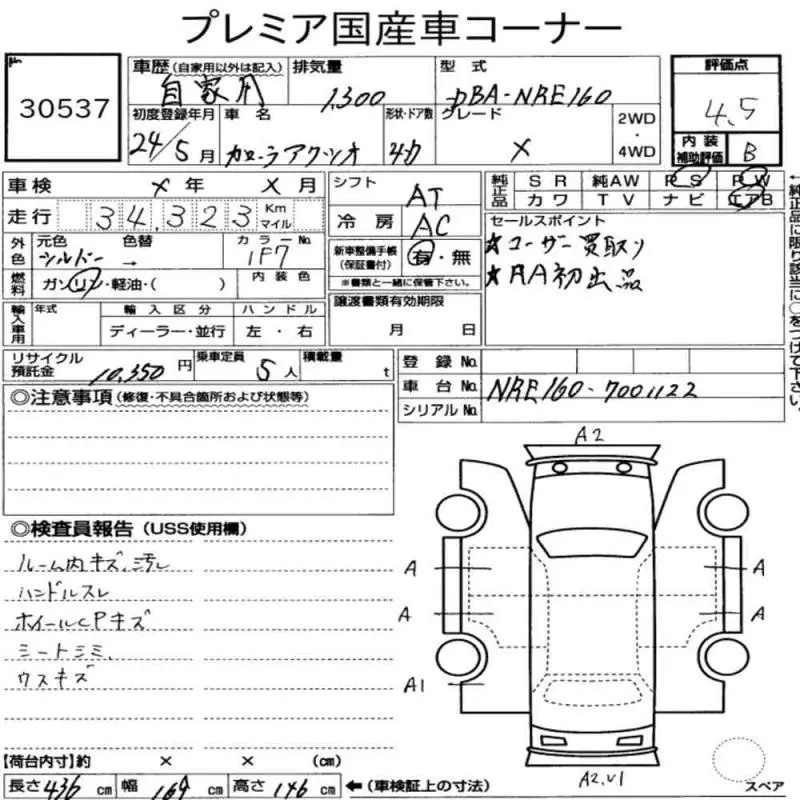 プレミア国産車コーナー
30537
車歴(自家用以外は記入) 自家用
排気量 1,300
型式 DBA-NRE160
評価点 4.5
初度登録年月 24/5月
車名 カローラアクシオ
形状・ドア数 4D
グレード ×
2WD・4WD
内装補助評価 B
車検 ×年 ×月
シフト AT
純正品 SR 純AW PS PW
カワ TV ナビ エアB
走行 34,323 Km マイル
冷房 AC
セールスポイント
★ユーザー買取り
★AA初出品
外色 元色 シルバー 色替 → カラーNo. 1F7
新車整備手帳(保証書付) 有・無
※書類と一緒に保管下さい。
燃料 ガソリン・軽油・( ) 内装色
譲渡書類有効期限
月 日
輸入車用 年式 輸入区分 ハンドル
ディーラー・並行 左・右
リサイクル預託金 10,350円 乗車定員 5人 積載量 t
登録No.
車台No. NRE160-7001122
シリアルNo.
←純正品に限り該当に○をつけて下さい。
◎注意事項(修復・不具合箇所および状態等)
◎検査員報告(USS使用欄)
ルーム内キズ、汚レ
ハンドルスレ
ホイールCPキズ
シートシミ、
ウスキズ
A2
A
A
A
A
A1
A2,U1
スペア
【荷台内寸】約 × × (cm)
長さ 436 cm 幅 169 cm 高さ 146 cm ←(車検証上の寸法)